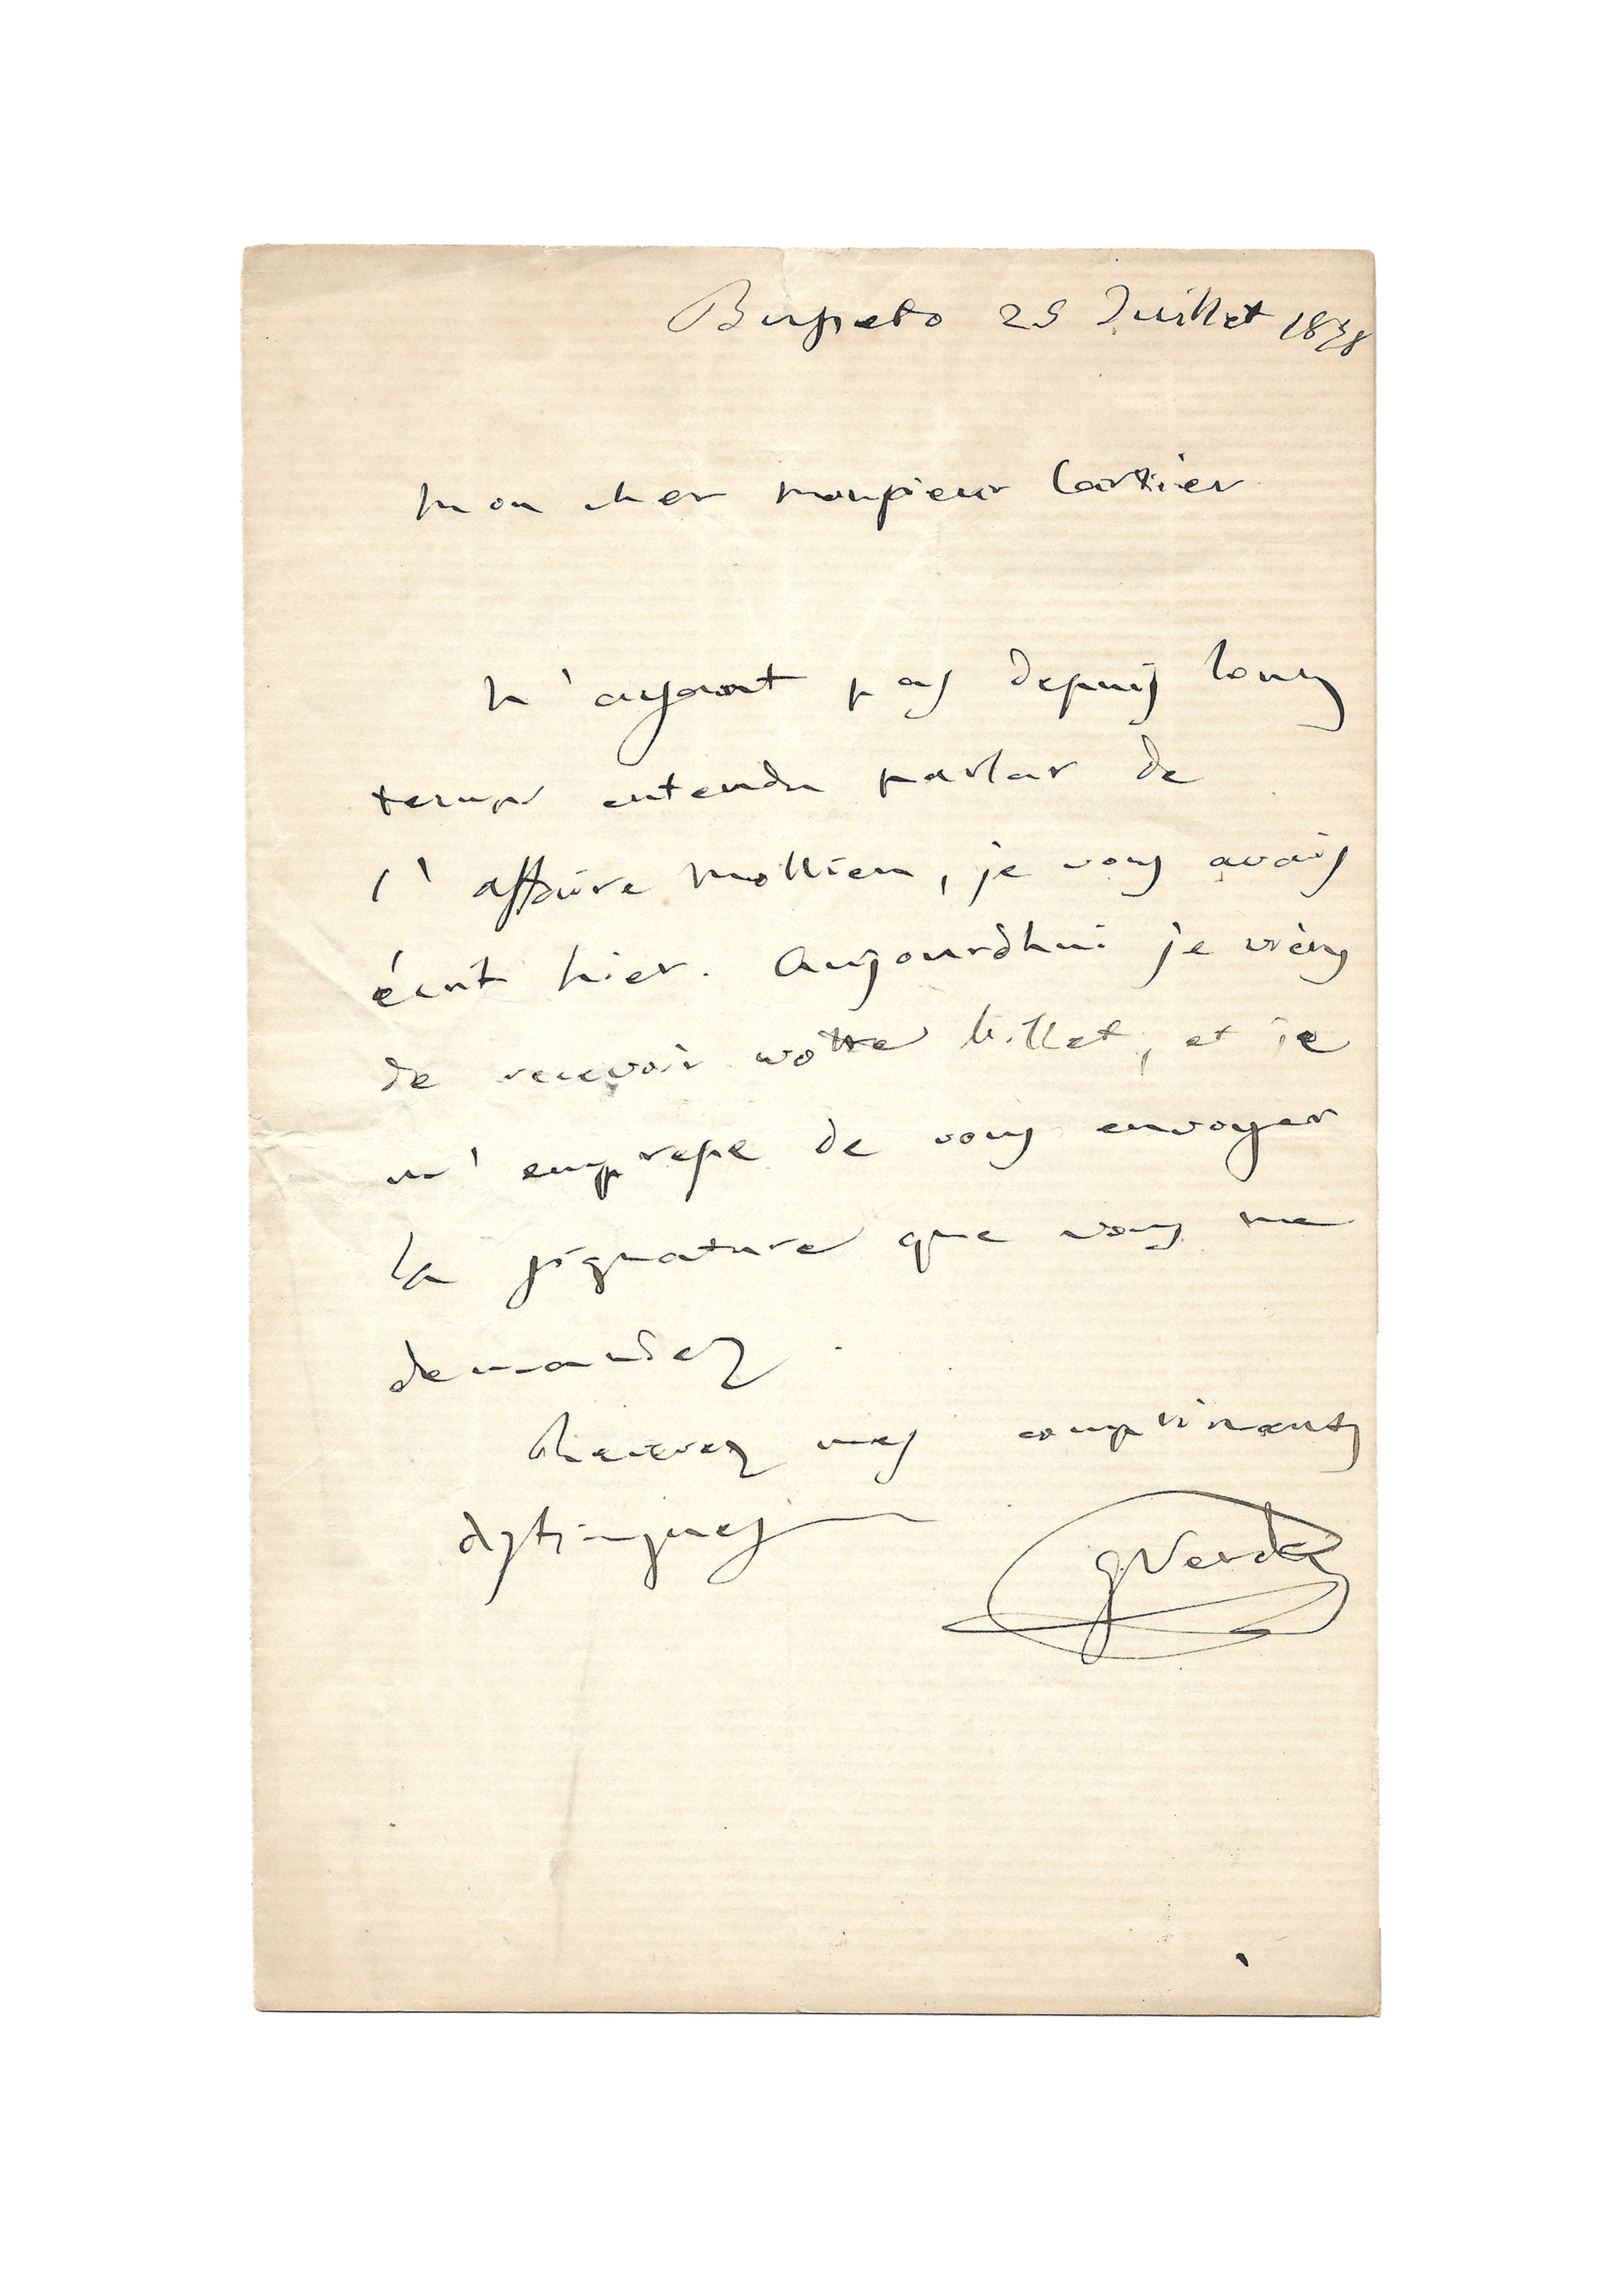 Busseto 25 Juillet 1878
Mon cher monsieur Cartier
N'ayant pas depuis long
temps entendu parlar de
l'affaire Mollien, je vous avais
écrit hier. Aujourdhui je viens
de recevoir votre billet, et je
m'empresse de vous envoyer
la signature que vous me
demandez.
Recevez mes complimens
distingues
G Verdi